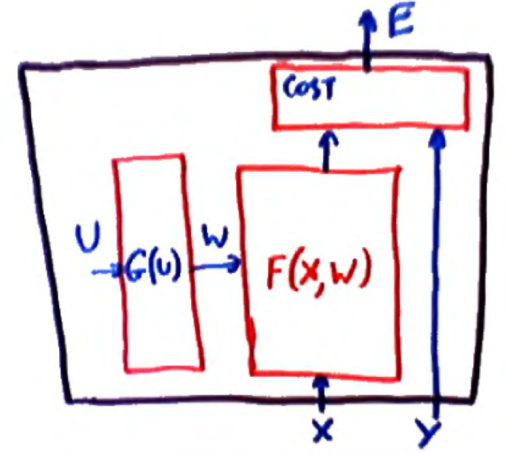 E
COST
U
G(U)
W
F(X,W)
X
Y